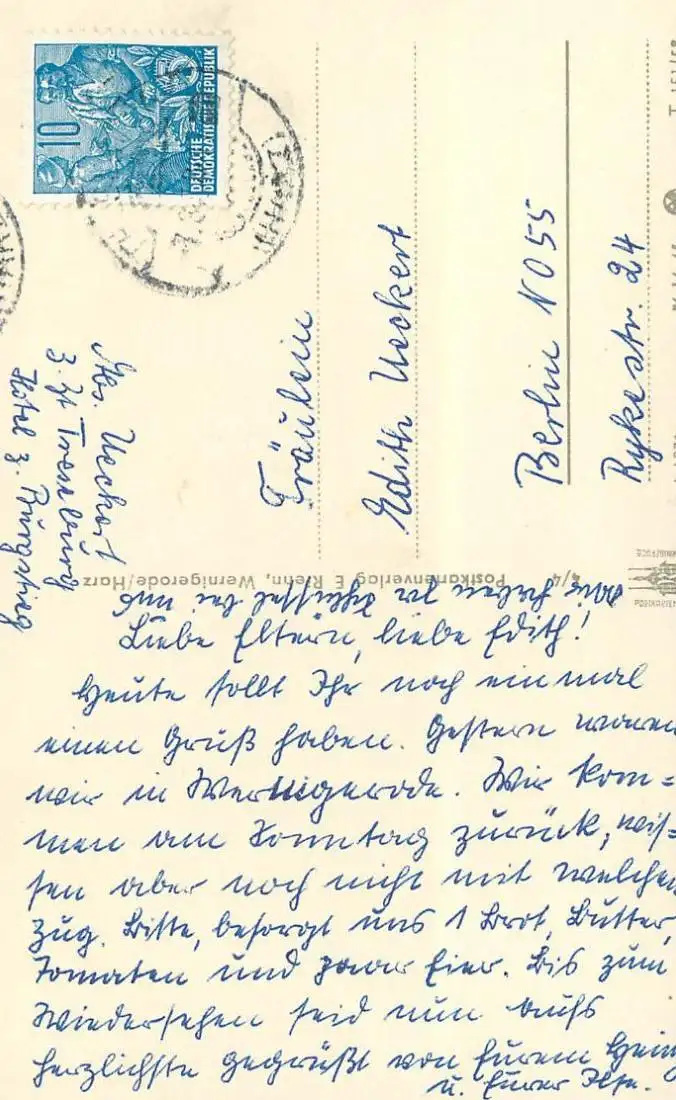 10
DEUTSCHE
DEMOKRATISCHE REPUBLIK
Abs. Ueckert
z. Zt Treseburg
Hotel z. Burgstieg
Fräulein
Edith Ueckert
Berlin NO 55
Rykestr. 24
Postkartenverlag E. Riehn, Wernigerode/Harz
4/4
Wir haben ja Schlüssel bei uns
Liebe Eltern, liebe Edith!
Heute sollt Ihr noch einmal
einen Gruß haben. Gestern waren
wir in Wernigerode. Wir kom=
men am Sonntag zurück, wis=
sen aber noch nicht mit welchem
Zug. Bitte, besorgt uns 1 Brot, Butter,
Tomaten und paar Eier. Bis zum
Wiedersehen seid nun aufs
herzlichste gegrüßt von Eurem Heinz
u. Eurer Ilse.